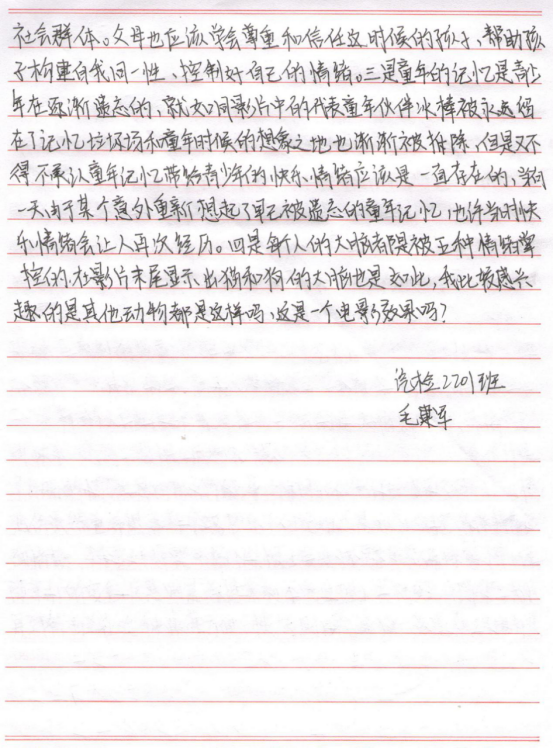 社会群体。父母也应该学会尊重和信任这时候的孩子、帮助孩
子构建自我同一性、控制好自己的情绪。三是童年的记忆是青少
年在逐渐遗忘的,就如同影片中的代表童年伙伴冰棒被永远留
在了记忆垃圾场和童年时候的想象之地也渐渐被拆除,但是又不
得不承认童年记忆带给青少年的快乐情绪应该是一直存在的,当有
一天,由于某个意外重新想起了早已被遗忘的童年记忆,也许当时快
乐情绪会让人再次经历。四是每个人的大脑都是被五种情绪掌
控的,在影片末尾显示出猫和狗的大脑也是如此,我比较感兴
趣的是其他动物都是这样吗,这是一个电影效果吗?
汽检2201班
毛军